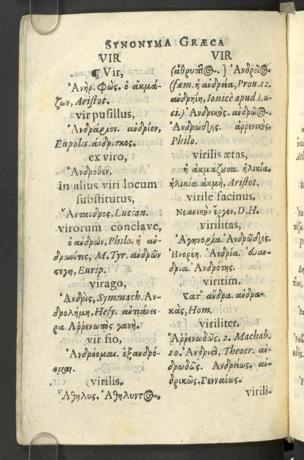 SYNONYMA GRÆCA
VIR
¶ Vir,
Ἀνήρ. Φώς. ὁ ἀκμά-
ζων, Aristot.
vir pusillus,
Ἀνδράριον. ἀνδρίον,
Eupolis.
ex viro,
Ἀνδρόθεν.
in alius viri locum
substitutus,
Ἄντανδρος, Lucian.
virorum conclave,
ὁ ἀνδρών, Philo. ἡ ἀν-
δρωνῖτις, M. Tyr. ἀνδρῶν
στέγη, Eurip.
virago,
Ἀνδρὶς, Symmach. Ἀν-
Hesy. ἀντιάνει-
ρα
vir fio,
Ἀνδρόομαι. ἐξανδρό-
ομαι.
virilis,
Ἄθηλυς.
VIR
Ἀνδρεῖος
ἡ ἀνδρεία, Pron. 12.
ἀνδρηΐη, Ionicè apud Lu-
ci.) Ἀνδρικός. ἀνδρῷος.
Ἀνδρώδης. ἀρρενικός,
Philo.
virilis ætas,
ἡ ἀκμάζουσα ἡλικία.
ἡλικία ἀκμή, Aristot.
virile facinus,
Νεανικὸν ἔργον, D.H.
virilitas,
Ἀγηνορία.
Ἠνορέη. Ἀνδρία.
Ἀνδρότης.
viritim.
Κατ' ἄνδρα. ἀνδρα-
κάς, Hom.
viriliter.
Ἀρρενωδῶς, 2. Machab.
10. Theocr. ἀν-
δρωδῶς. Ἀνδρείως. ἀν-
δρικῶς. Γενναίως.
virili-